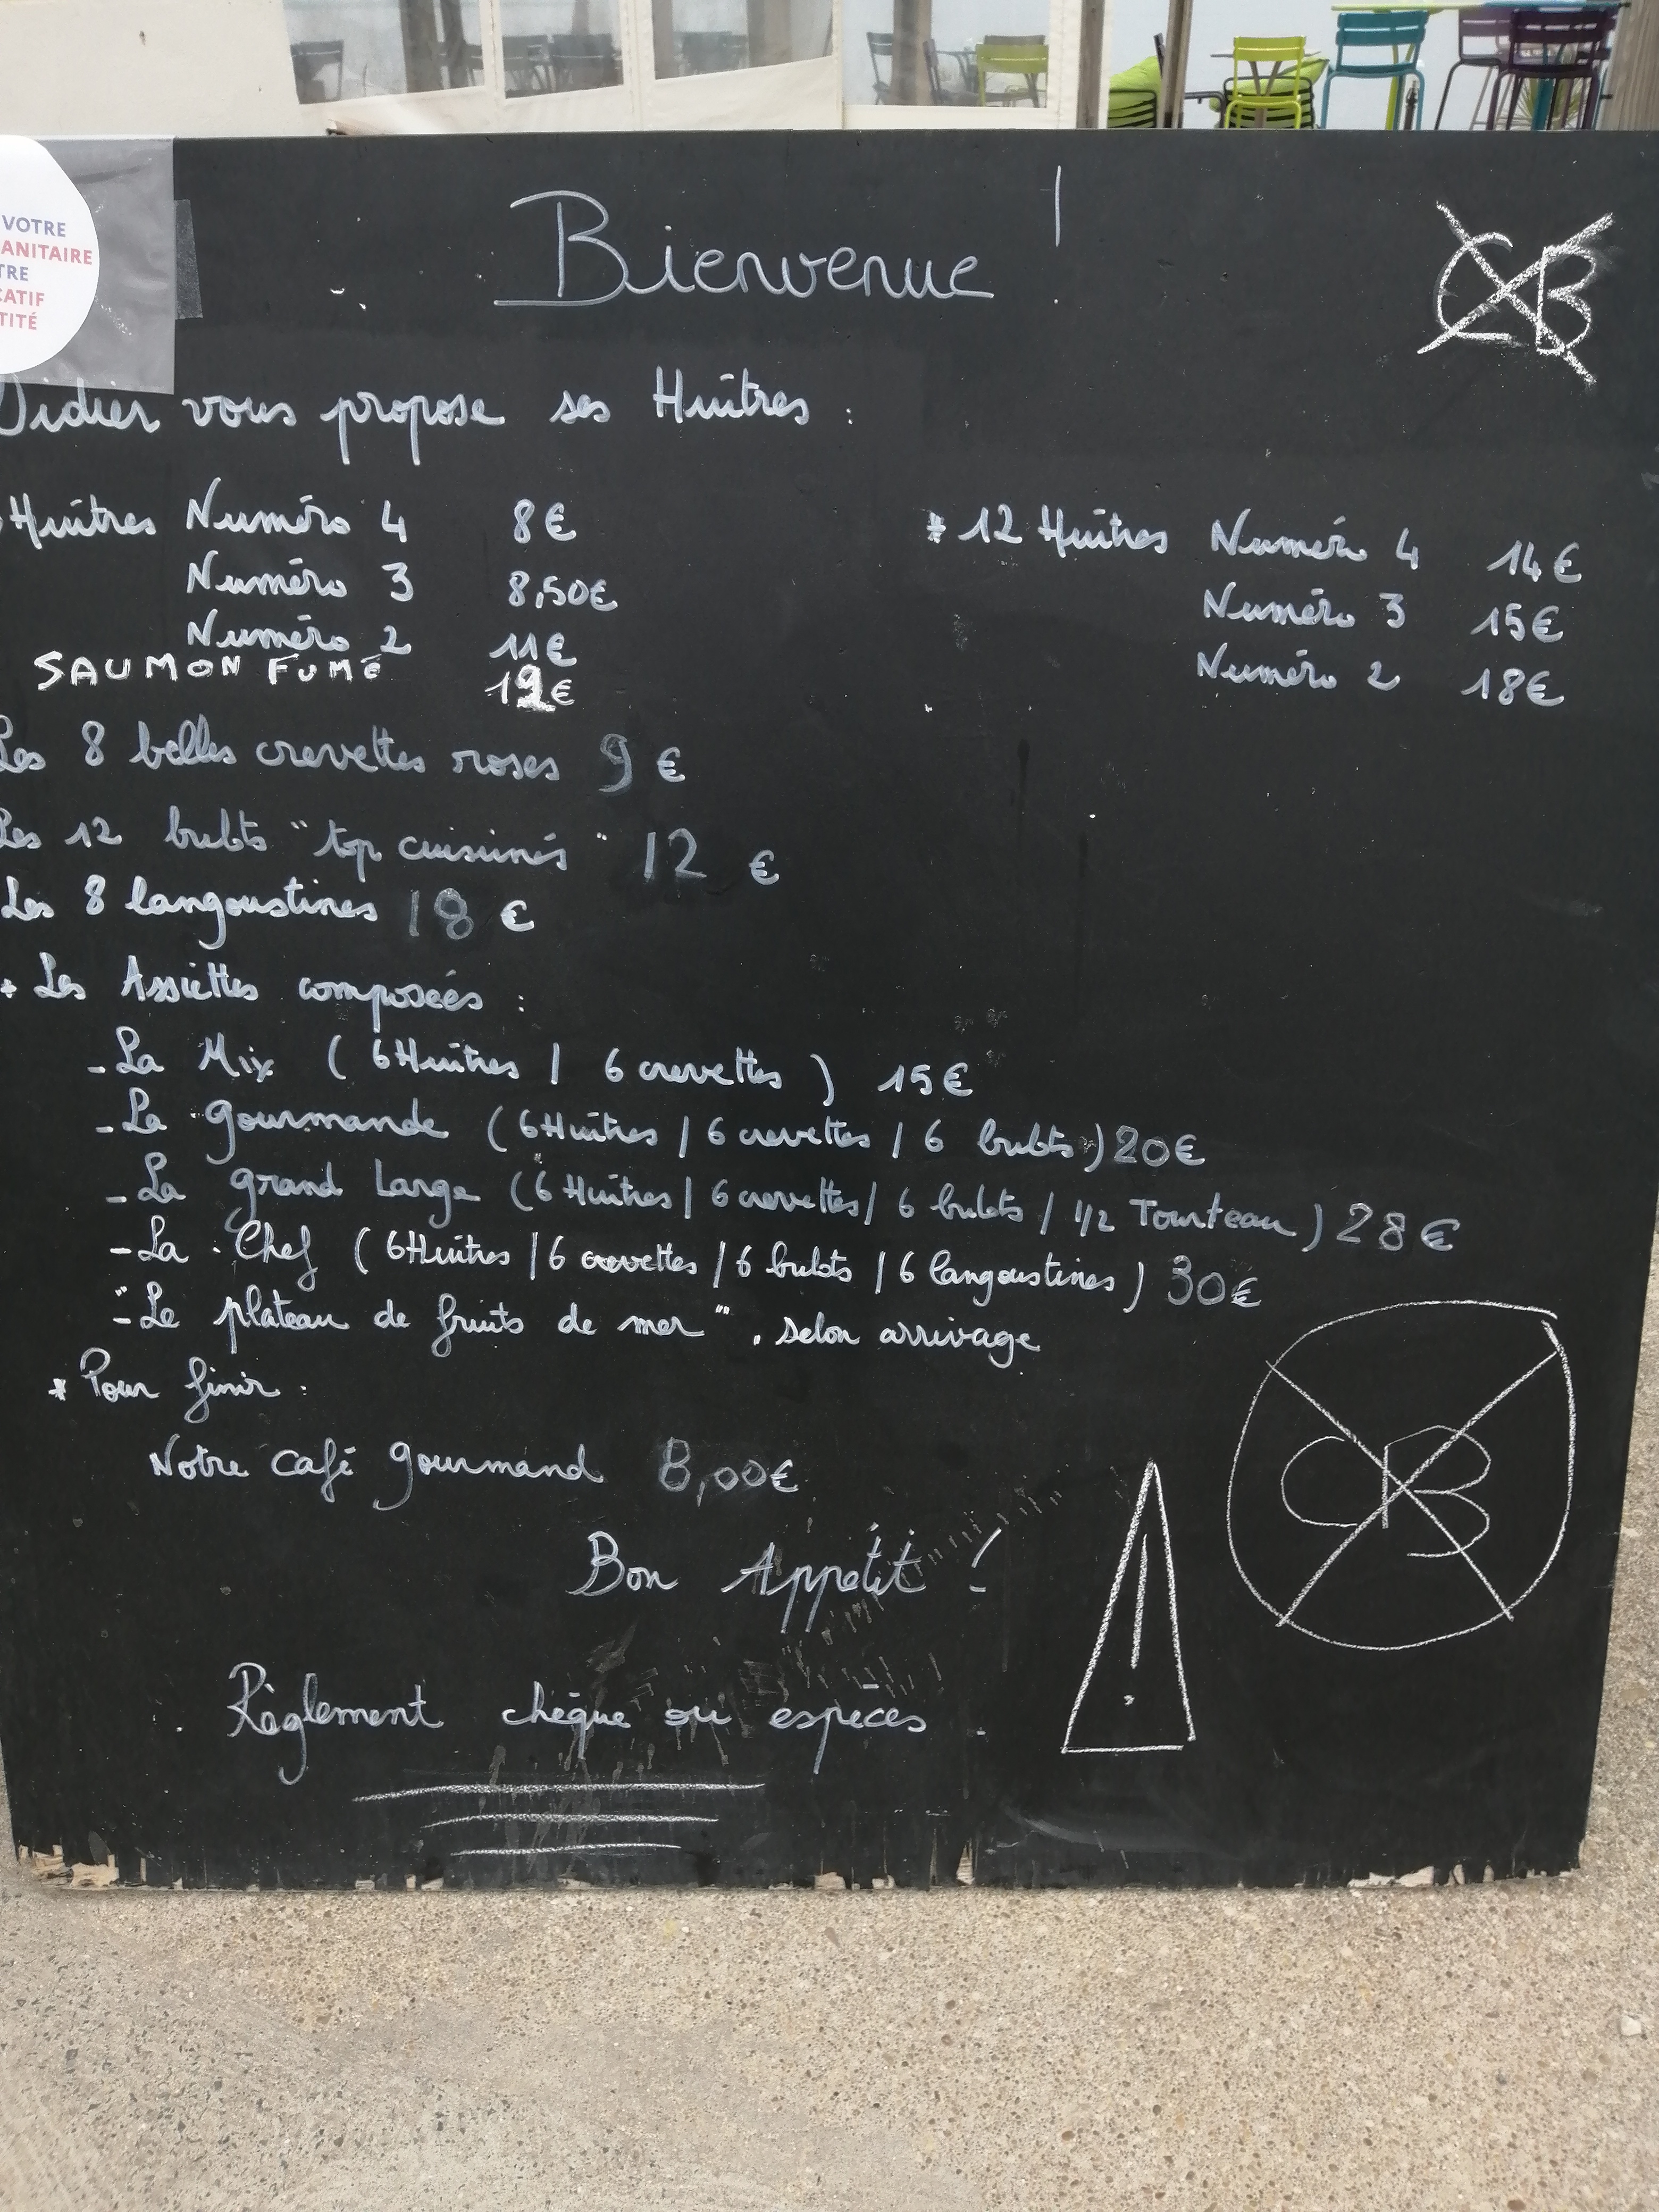 VOTRE
ANITAIRE
TRE
CATIF
TITÉ
Bienvenue !
CB
Didier vous propose ses Huîtres :
Huîtres Numéro 4 8€
Numéro 3 8,50€
Numéro 2 11€
SAUMON FUMÉ 12€
* 12 Huîtres Numéro 4 14€
Numéro 3 15€
Numéro 2 18€
Les 8 belles crevettes roses 9€
Les 12 bulots "top cuisinés" 12 €
Les 8 langoustines 18 €
* Les Assiettes composées :
- La Mix ( 6 Huîtres / 6 crevettes ) 15€
- La gourmande ( 6 Huîtres / 6 crevettes / 6 bulots ) 20€
- La grand Large ( 6 Huîtres / 6 crevettes / 6 bulots / 1/2 Tourteau ) 28€
- La Chef ( 6 Huîtres / 6 crevettes / 6 bulots / 6 langoustines ) 30€
- "Le plateau de fruits de mer", selon arrivage
* Pour finir :
Notre café gourmand 8,00€
Bon Appétit !
CB
!
Règlement chèque ou espèces